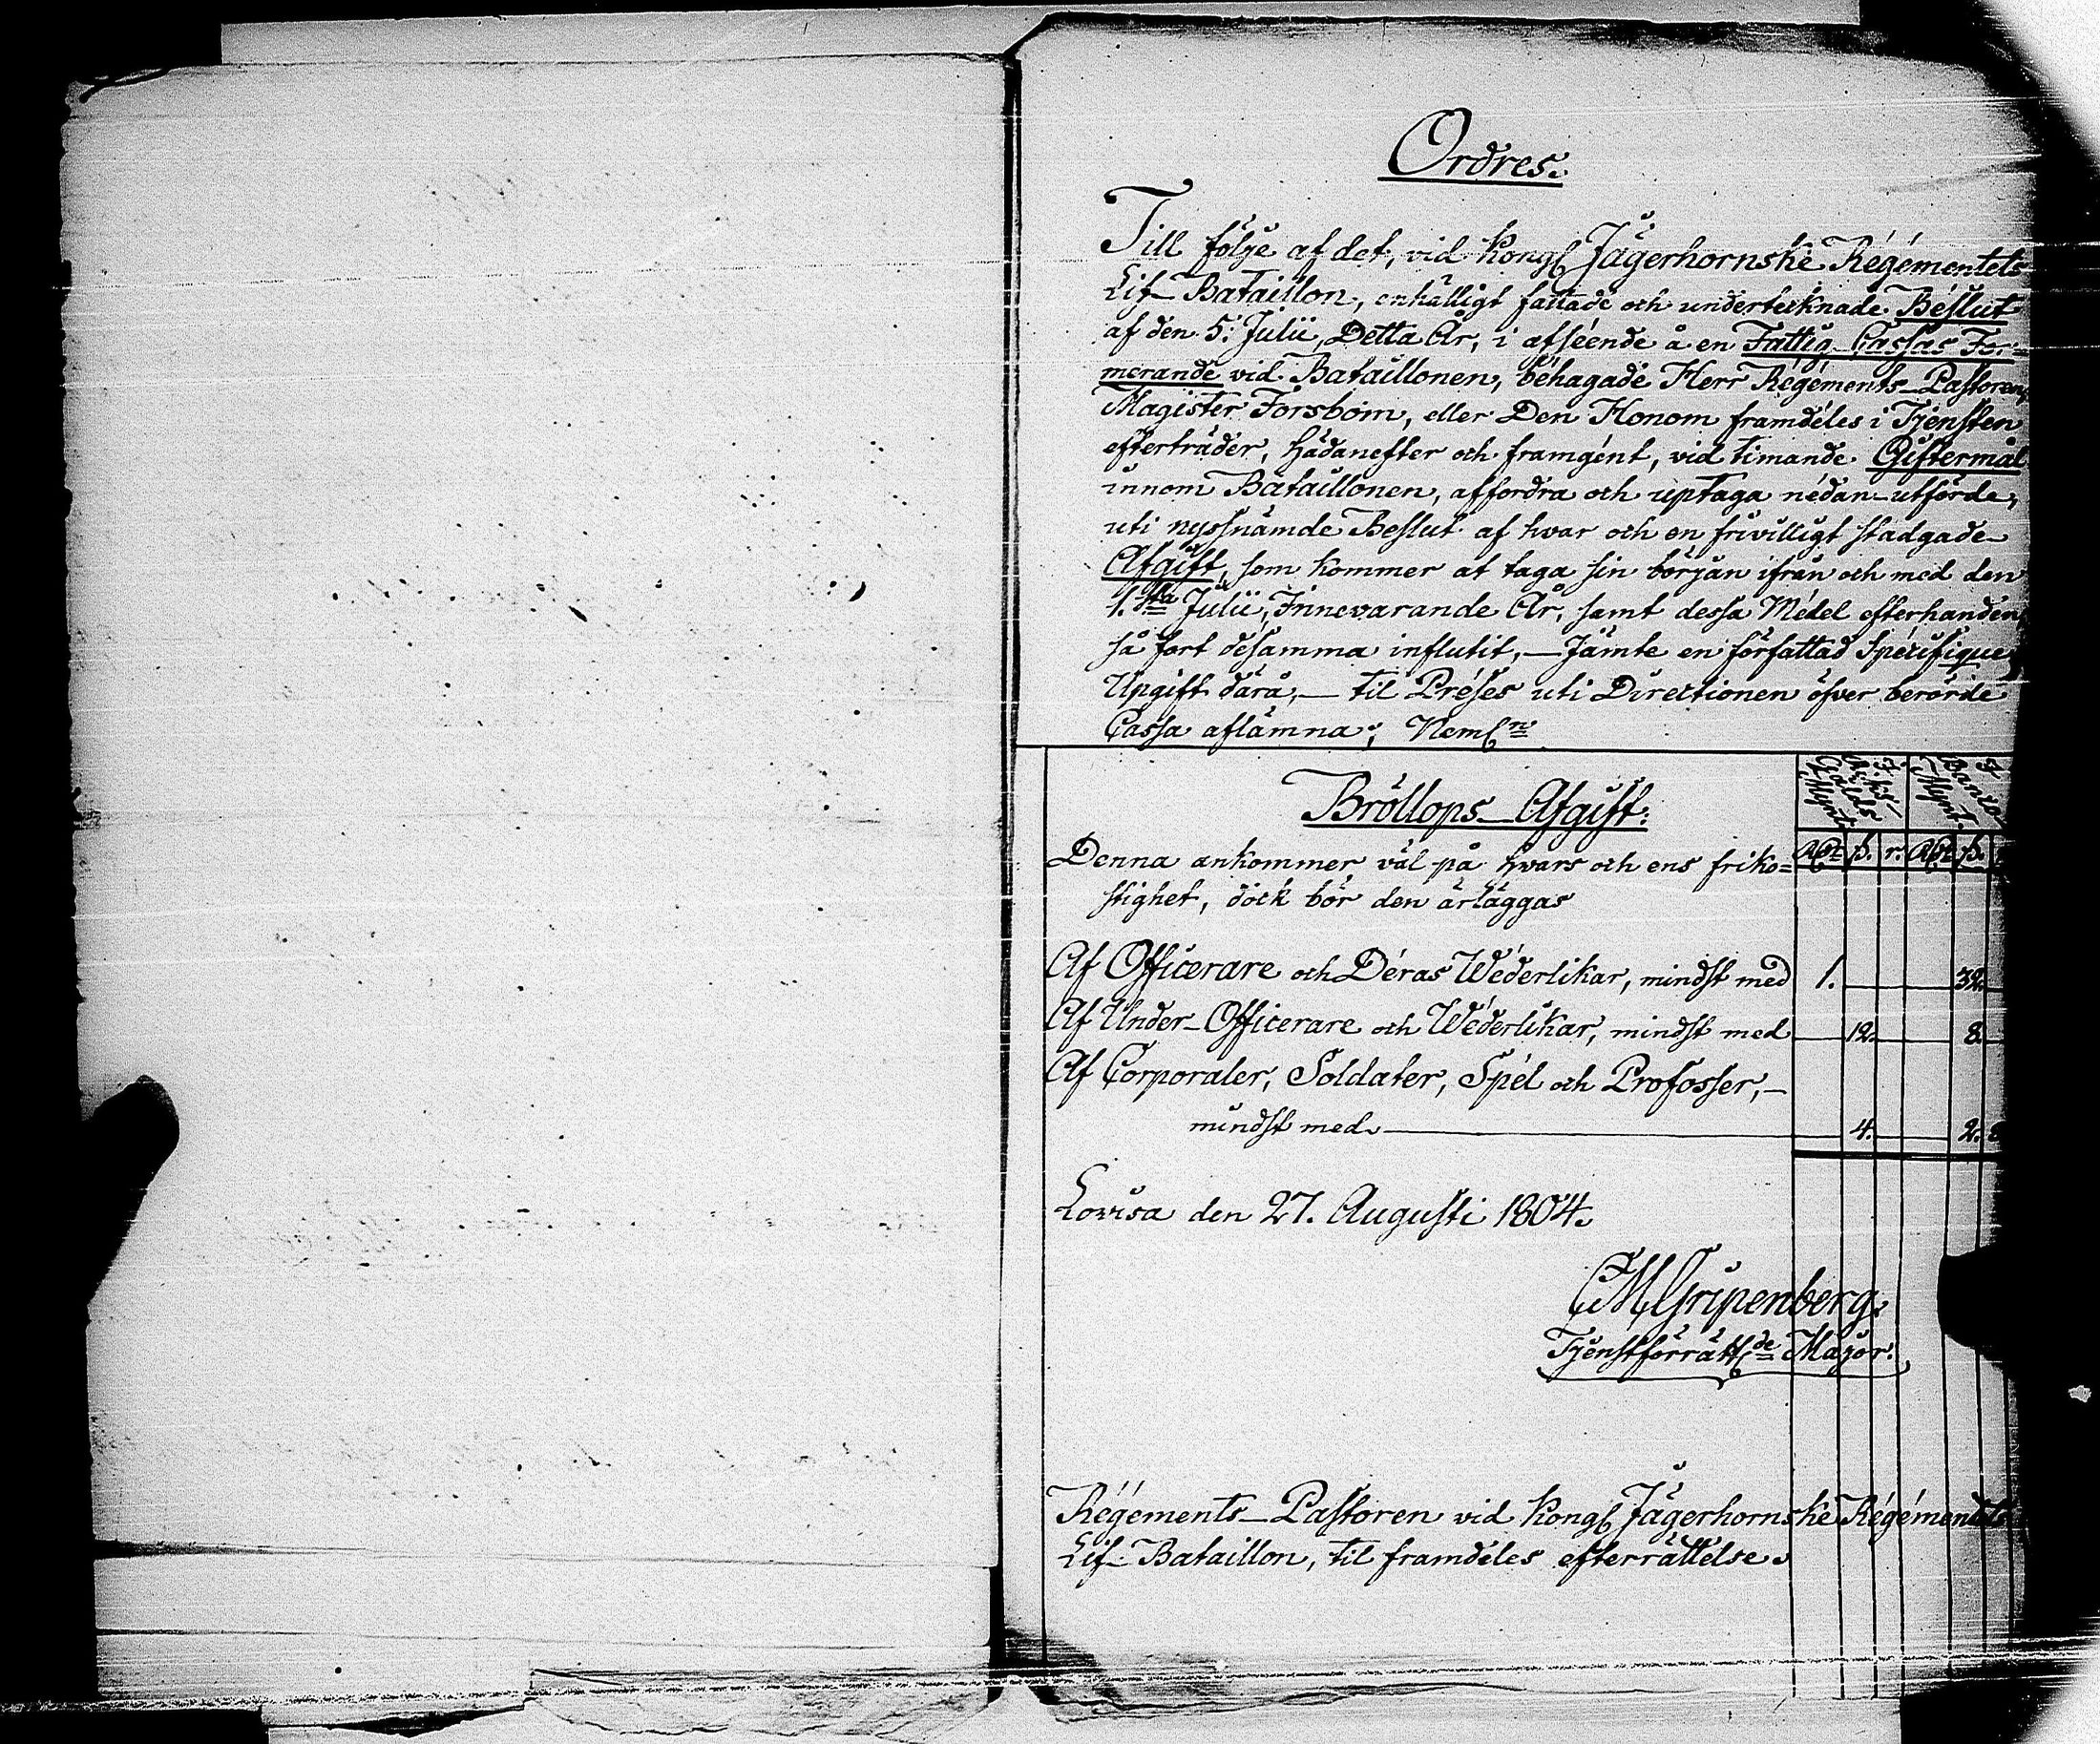 Ordres.
Till följe af det, vid Kongl Jägerhornske Régémentets
Lif-Bataillon, enhälligt fattade och undertecknade Beslut
af den 5: Julii, Detta År, i afséende å en Fattig-Cassas For=
merande vid Bataillonen, béhagade Herr Régéments-Pastoren,
Magister Forsbom, eller Den Honom framdéles i Tjensten
efterträder, hädanefter och framgént, vid timande Giftermål
innom Bataillonen, affordra och uptaga nédan-utförde,
uti nyssnämde Beslut af hvar och en frivilligt stadgade
Afgift, som kommer at taga sin början ifrån och med den
1.sta Julii, Innevarande År, samt dessa Médel efterhanden,
så fort désamma influtit, — Jämte en författad Spécifique
Upgift därå, — til Préses uti Directionen öfver berörde
Cassa aflämna; Neml.n
Bröllops-Afgift:
I Riks-Gälds Mynt.
I Banco Mynt.
Rdr ß. r. Rdr ß.
Denna ankommer väl på hvars och ens friko=
stighet, dock bör den ärläggas
Af Officerare och Déras Wéderlikar, mindst med 1. 32.
Af Under-Officerare och Wéderlikar, mindst med 12. 8.
Af Corporaler, Soldater, Spél och Profosser, —
mindst med. 4. 2. 8
Lovisa den 27. Augusti 1804.
CMGripenberg.
Tjenstförrätt.de Major.
Régéments-Pastoren vid Kongl Jägerhornske Régémentets
Lif-Bataillon, til framdéles efterrättelse.